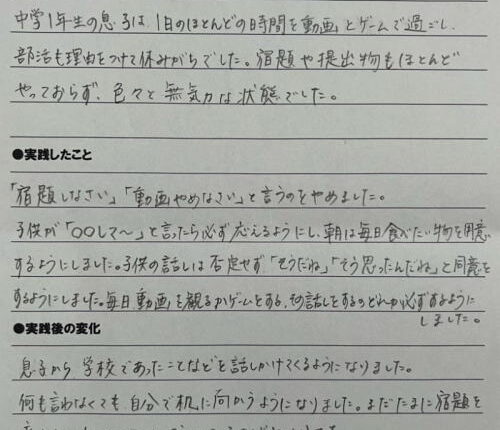 中学1年生の息子は、1日のほとんどの時間を動画とゲームで過ごし、
部活も理由をつけて休みがちでした。宿題や提出物もほとんど
やっておらず、色々と無気力な状態でした。
●実践したこと
「宿題しなさい」「動画やめなさい」と言うのをやめました。
子供が「○○して〜」と言ったら必ず応えるようにし、朝は毎日食べたい物を用意
するようにしました。子供の話しは否定せず「そうだね」「そう思ったんだね」と同意を
するようにしました。毎日動画を観るかゲームをする、の話しをするのどれか必ずするように
しました。
●実践後の変化
息子から学校であったことなどを話しかけてくるようになりました。
何も言わなくても自分で机に向かうようになりました。まだたまに宿題を